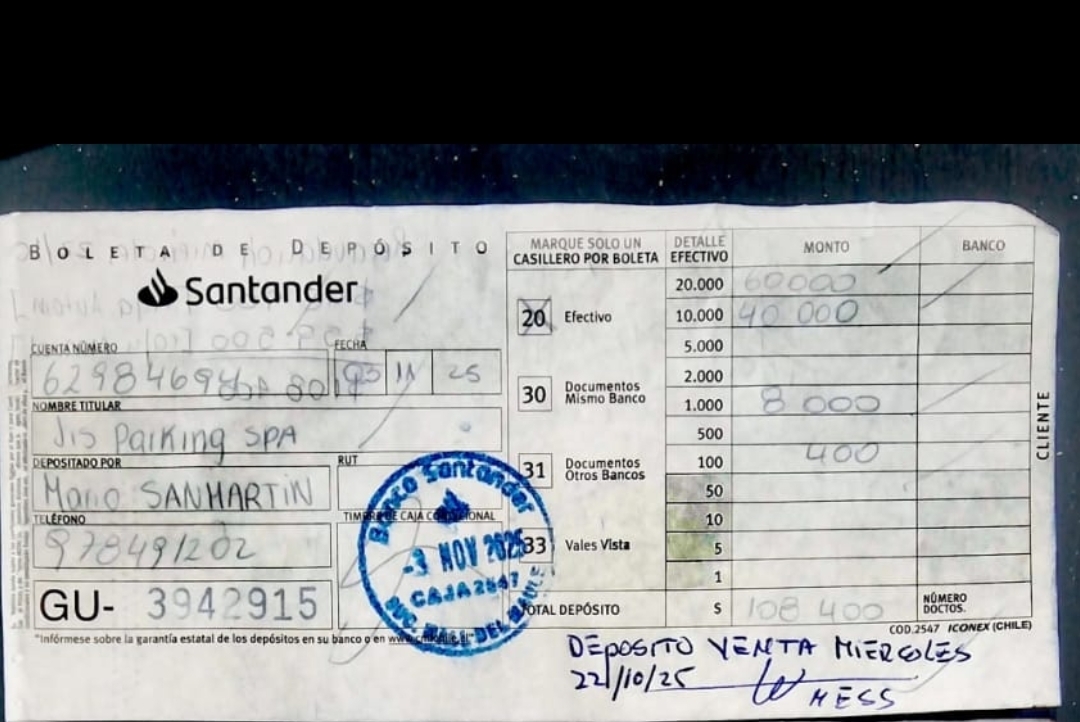 BOLETA DE DEPÓSITO
Santander
CUENTA NÚMERO
FECHA
03 11 25
NOMBRE TITULAR
Jis Parking SPA
DEPOSITADO POR
RUT
Mario SANMARTIN
TELÉFONO
TIMBRE DE CAJA
978491202
GU- 3942915
"Infórmese sobre la garantía estatal de los depósitos en su banco o en
MARQUE SOLO UN
CASILLERO POR BOLETA
20 Efectivo
30 Documentos
Mismo Banco
31 Documentos
Otros Bancos
33 Vales Vista
DETALLE
EFECTIVO
MONTO
BANCO
20.000 60000
10.000 40 000
5.000
2.000
1.000 8 000
500
100 400
50
10
5
1
TOTAL DEPÓSITO $ 108 400
NÚMERO
DOCTOS.
CLIENTE
COD.2547 ICONEX (CHILE)
Banco Santander
-3 NOV 2025
CAJA2547
DEPOSITO VENTA MIERCOLES
22/10/25
MESS